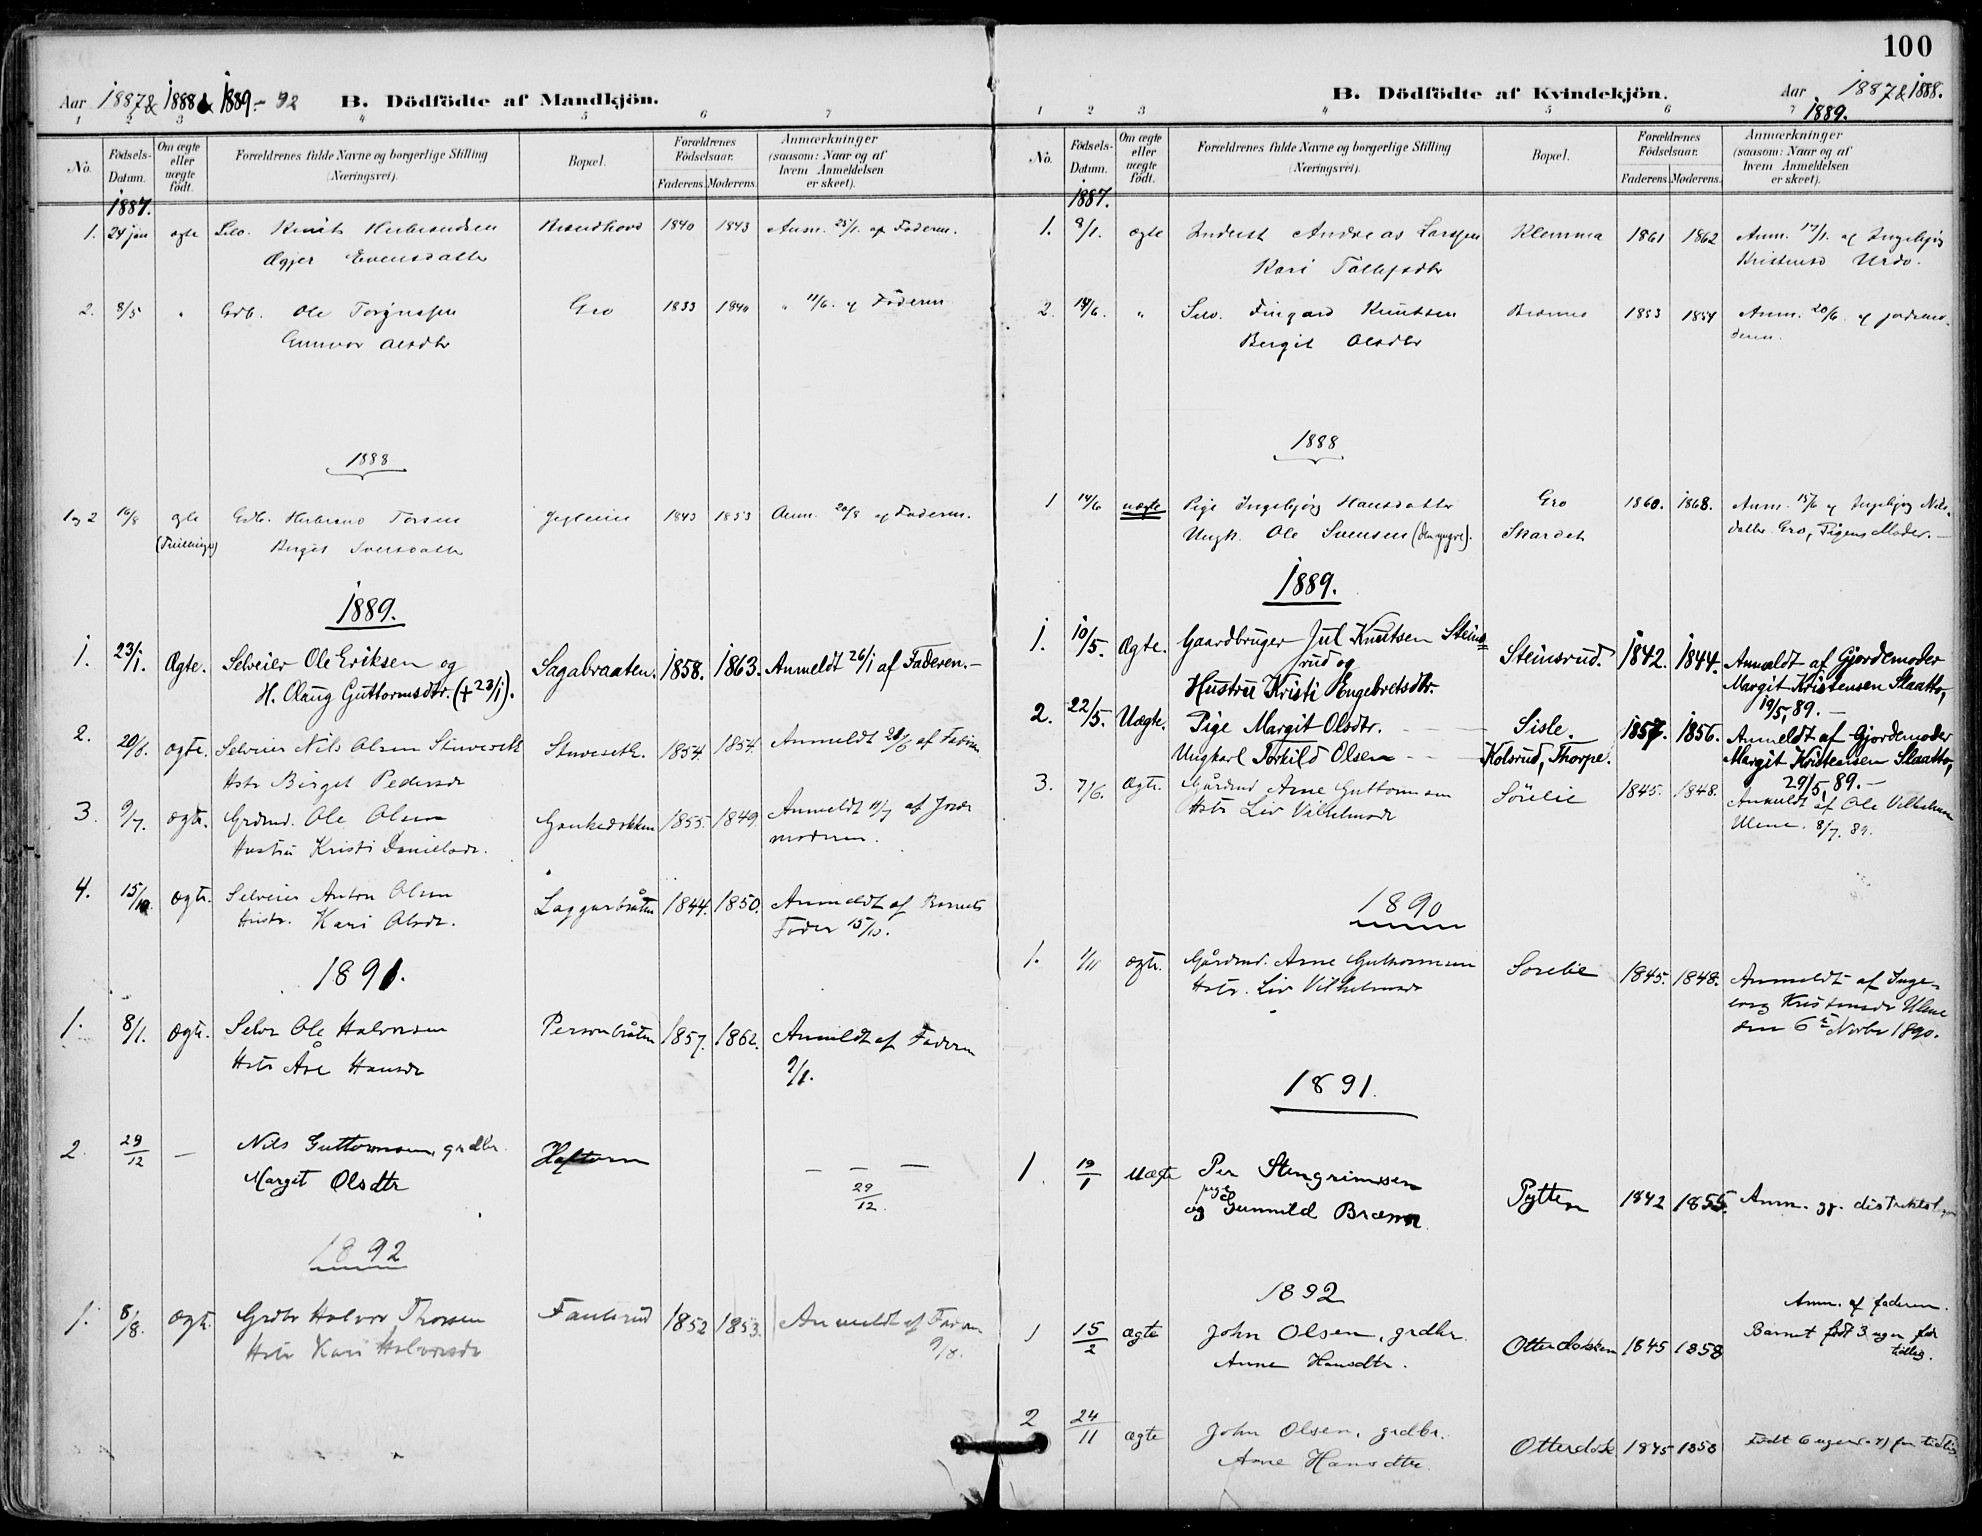 100
Aar 1887 & 1888 & 1889 - 92 B. Dödfödte af Mandkjön.
1 2 3 4 5 6 7
No. Födsels-Datum. Om ægte eller uægte födt. Forældrenes fulde Navne og borgerlige Stilling (Næringsvei). Bopæl. Forældrenes Födselsaar. Faderens. Moderens. Anmærkninger (saasom: Naar og af hvem Anmeldelsen er skeet).
1887.
1. 24 jan ægte Selv. Knut Herbrandsen Brandhovd 1840 1843 Anm. 25/1. af Faderen.
Øgjer Evensdatter
2. 8/5 " Grdb. Ole Torgrimsen Gro 1833 1840 " 11/6. af Faderen
Gunvor Olsdtr
1888
1 og 2 16/8 ægte Gdb. Herbrand Torsen 1843 1853 Anm. 20/8 af Faderen.
(Tvillinger) Birgit
1889.
1. 23/1. Ægte. Selveier Ole Eriksen og Sagabraaten. 1858. 1863. Anmeldt 26/1 af Faderen.-
H. Olaug Guttormsdtr. (+ 23/1).
2. 20/6. ægte. Selveier Nils Olsen Stuvesetr Stuvesetr. 1854. 1854. Anmeldt 28/6 af Faderen
Hstr Birget Pedersdr
3. 9/7. ægte. Grdmd. Ole Olsen Gaukedokken 1855. 1849. Anmeldt 11/7 af Jorde
Hustru Kristi Danielsdr. moderen.
4. 15/10. ægte. Selveier Anton Olsen Laggarbråten 1844. 1850. Anmeldt af Barnets
Hustr. Kari Olsdr. Fader 15/10.
1891.
1. 8/1. ægte. Selvr Ole Halvorsen Personbråten 1857. 1862. Anmeldt af Faderen
Hstr Åse Hansdr 9/1.
2. 29/12 — Nils Guttormsen, grdbr. Haftorn — — —
Margit Olsdtr 29/12.
1892
1. 8/8. ægte. Grdbr Halvor Thorsen Fauterud 1852 1853. Anmeldt af Faderen
Hstr Kari Halvorsdr 9/8.
B. Dödfödte af Kvindekjön. Aar 1887 & 1888.
1889.
1 2 3 4 5 6 7
No. Födsels-Datum. Om ægte eller uægte födt. Forældrenes fulde Navne og borgerlige Stilling (Næringsvei). Bopæl. Forældrenes Födselsaar. Faderens. Moderens. Anmærkninger (saasom: Naar og af hvem Anmeldelsen er skeet).
1887.
1. 9/1. ægte Inderst Andreas Larssen Klemma 1861 1862 Anm. 17/1. af Ingebjør
Kari Tollefsdtr Kristensd Urdo.
2. 14/6. " Selv. Fingard Knutsen Bromma 1853 1854 Anm. 20/6. af jordemo-
Bergit Olsdtr deren.
1888
1 14/6 uægte Pige Ingebjør Hansdatter Gro 1860. 1868. Anm. 15/6 af Ingebjør Nils-
Ungk. Ole Svensen (den yngre). Skardet datter Gro, Pigens Moder. —
1889.
1. 10/5. Ægte. Gaardbruger Jul Knutsen Steins= Steinsrud. 1842. 1844. Anmeldt af Gjordemoder
rud og Margit Kristensen Slaatto,
Hustru Kristi Engebretsdtr. 19/5, 89. —
2. 22/5. Uægte. Pige Margit Olsdtr. Sisle. 1857. 1856. Anmeldt af Gjordemoder
Ungkarl Torkild Olsen Kolsrud, Thorpe. Margit Kristensen Slaatto,
29/5, 89. —
3. 7/6. Ægte. Gårdmd Arne Guttormsen Sörelie 1845. 1848. Anmeldt af Ole Vilhelmsen
Hstr Liv Vilhelmsdr Ulene. 8/7. 89.
1890
1. 1/11 ægte. Gårdmd. Arne Guttormsen Sorelie 1845. 1848. Anmeldt af Inge-
Hstr. Liv Vilhelmsdr borg Kristensdr Ulene
den 6te Novbr 1890.
1891.
1. 19/1 Uægte Per Stengrimssen
pige
og Gunnild Bræmn Pytten 1842 1855. Anm. gj. distriktslægen
1892
1 15/2 ægte John Olsen, grdbr. Otterdokken 1845 1858 Anm. af faderen.
Anne Hansdtr. Barnet født 3 uger for
tidlig.
2 24/11 ægte John Olsen, grdbr. Otterdok 1845 1858 Født 6 uger for tidlig
Anne Hansdtr.